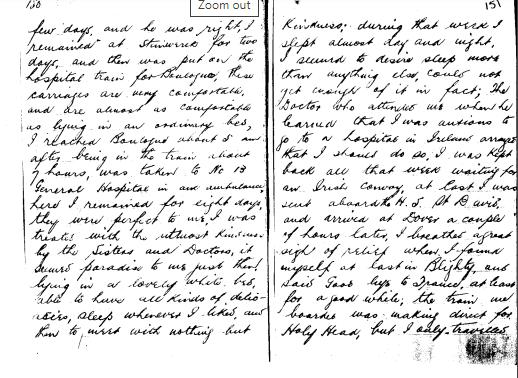 150
Zoom out
few days, and he was right, I
remained at Stinwerck for two
days, and then was put on the
hospital train for Boulogne, these
carriages are very comfortable,
and are almost as comfortable
as lying in an ordinary bed,
I reached Boulogne about 5 am
after being in the train about
7 hours, was taken to No 13
General Hospital in an ambulance
here I remained for eight days,
they were perfect to me, I was
treated with the utmost kindness
by the Sisters and Doctors, it
seemed paradise to me just then!
lying in a lovely white bed,
able to have all kinds of delic-
acies, sleep whenever I liked, and
then to meet with nothing but
151
Kindness; during that week I
slept almost day and night,
I seemed to desire sleep more
than anything else, could not
get enough of it in fact; The
Doctor who attended me when he
learned that I was anxious to
go to a hospital in Ireland arranged
that I should do so, I was kept
back all that week waiting for
an Irish convoy, at last I was
sent aboard the H. S. St David,
and arrived at Dover a couple
of hours later, I breathed a great
sigh of relief when I found
myself at last in Blighty, and
said Good bye to France, at least
for a good while; the train we
boarded was making direct for
Holy Head, but I only travelled